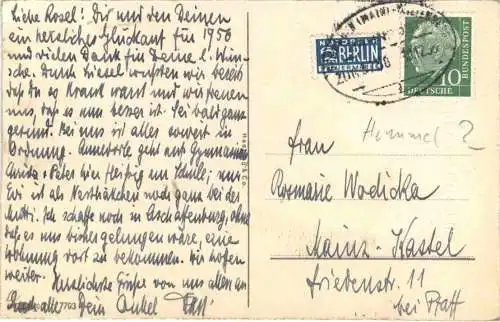 Liebe Rosel! Dir und den Deinen
ein herzliches Glückauf für 1956
und vielen Dank für Deine l. Wün-
sche. Durch Liesel wußten wir bereits
daß Du so krank warst und wir freuen
uns, daß es uns besser ist. Sei bald ganz
gesund. Bei uns ist alles soweit in
Ordnung. Annedorle geht aufs Gymnasium
Peter hier fleißig in Schule; nur
Evi ist als Nesthäkchen noch ganz bei der
Mutti. Ich schaffe noch in Aschaffenburg, ohne
daß es uns bisher gelungen wäre, eine
Wohnung dort zu bekommen. Wir hoffen
weiter. Herzlichste Grüße von uns allen an
Euch alle Dein Onkel
7793
NOTOPFER
2 BERLIN
STEUERMARKE
(MAIN)
ZUG
DEUTSCHE
BUNDESPOST
10
Himmel ?
Frau
Rosmarie Wodicka
Mainz-Kastel
Friedenstr. 11
bei Pfaff